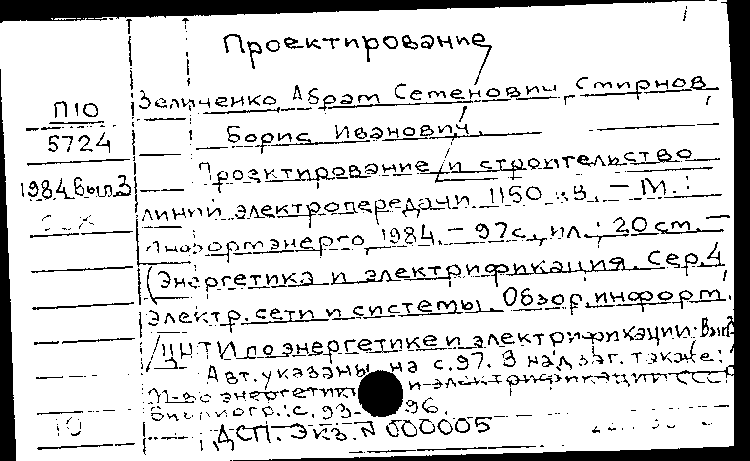 Проектирование
Зеличенко, Абрам Семенович, Смирнов
П10
5724
Борис Иванович.
Проектирование и строительство
1984 вып.3
линий электропередачи 1150 кВ. – М.:
Информэнерго, 1984. – 97с., ил.; 20 см. –
(Энергетика и электрификация. Сер. 4,
Электр. сети и системы. Обзор. информ.
/ЦНТИ по энергетике и электрификации; Вып. 3
Авт. указаны на с. 97. В надзаг. также:
М-во энергетики и электрификации СССР
Библиогр.: с. 93-96.
10
ДСП. Экз. N 000005